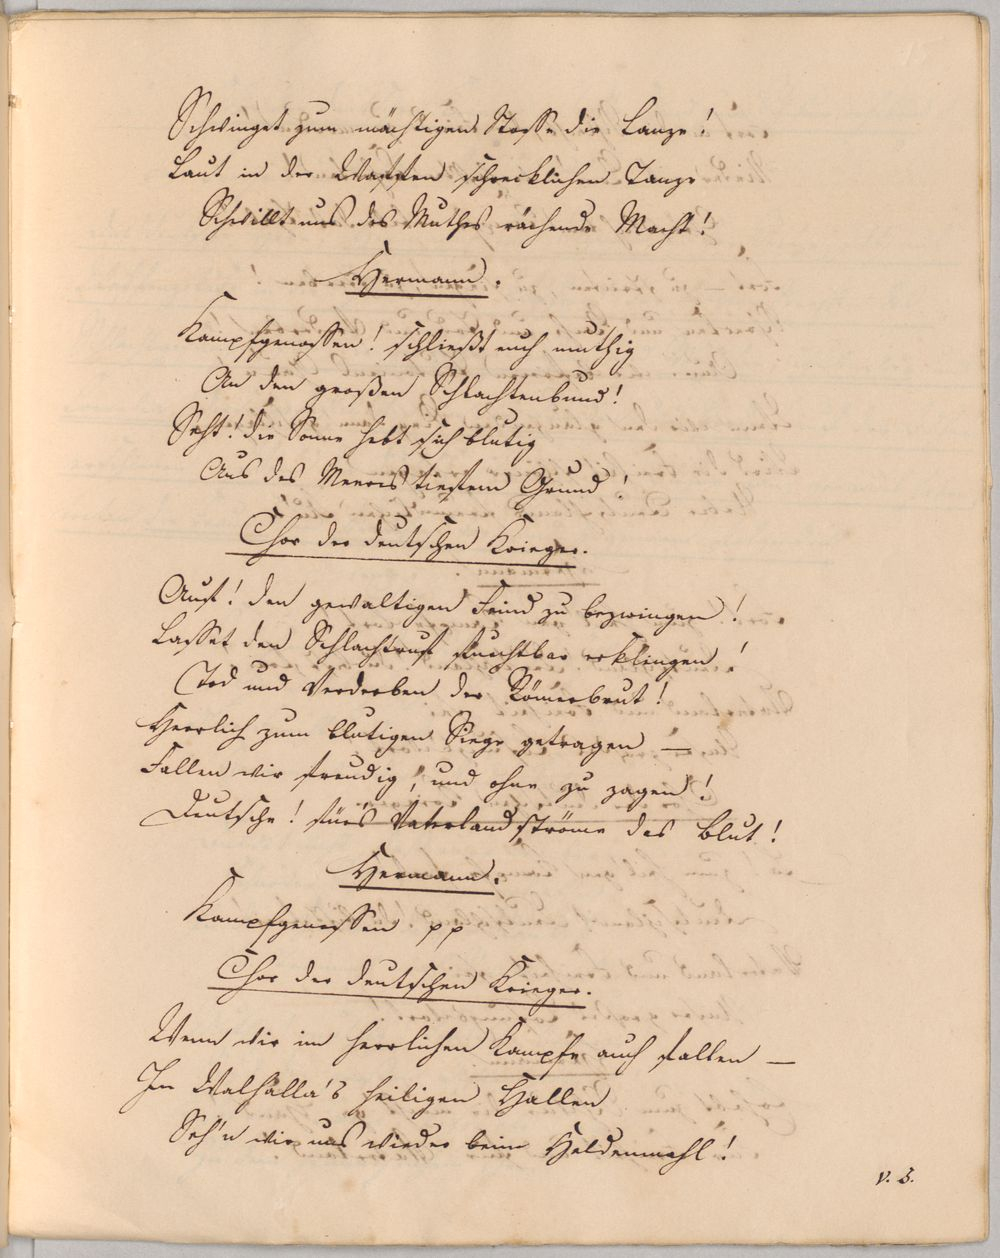 Schwinget zum mächtigen Stosse die Lanze!
Laut in der Waffen schrecklichen Tanze
Schwillt uns des Muthes rächende Macht!
Hermann.
Kampfgenossen! schließt euch muthig
An den großen Schlachtenbund!
Seht! die Sonne hebt sich blutig
Aus des Meeres tiefstem Grund!
Chor der deutschen Krieger.
Auf! den gewaltigen Feind zu bezwingen!
Lasset den Schlachtruf furchtbar erklingen!
Tod und Verderben der Römerbrut!
Herrlich zum blutigen Siege getragen —
Fallen wir freudig, und ohne zu zagen!
Deutsche! für's Vaterland ströme das Blut!
Hermann.
Kampfgenossen pp
Chor der deutschen Krieger.
Wenn wir im herrlichen Kampfe auch fallen —
In Walhalla's heiligen Hallen
Seh'n wir uns wieder beim Heldenmahl!
V. S.